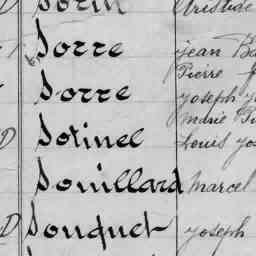 D Sorin Aristide
Sorre Jean
Pierre
Sorre Joseph
Marie
D Sotinel Louis
Souillard Marcel
D Souquet Joseph